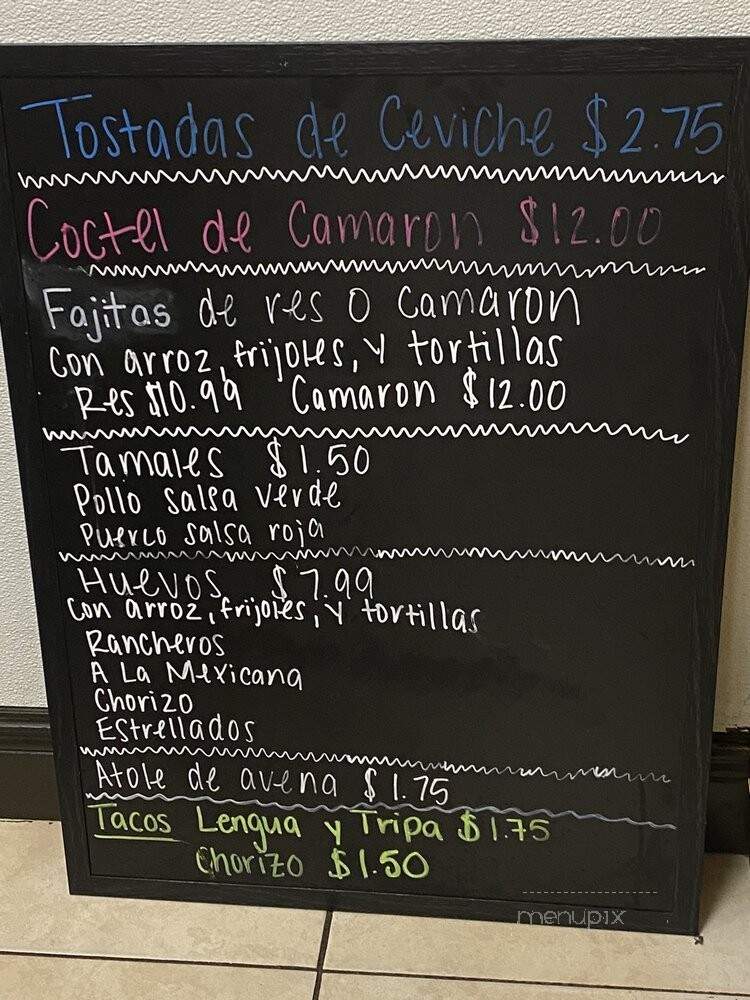 Tostadas de Ceviche $2.75
Coctel de Camaron $12.00
Fajitas de res o Camaron
con arroz, frijoles, y tortillas
Res $10.99 Camaron $12.00
Tamales $1.50
Pollo salsa verde
Puerco salsa roja
Huevos $7.99
con arroz, frijoles, y tortillas
Rancheros
A La Mexicana
Chorizo
Estrellados
Atole de avena $1.75
Tacos Lengua y Tripa $1.75
Chorizo $1.50
menupix